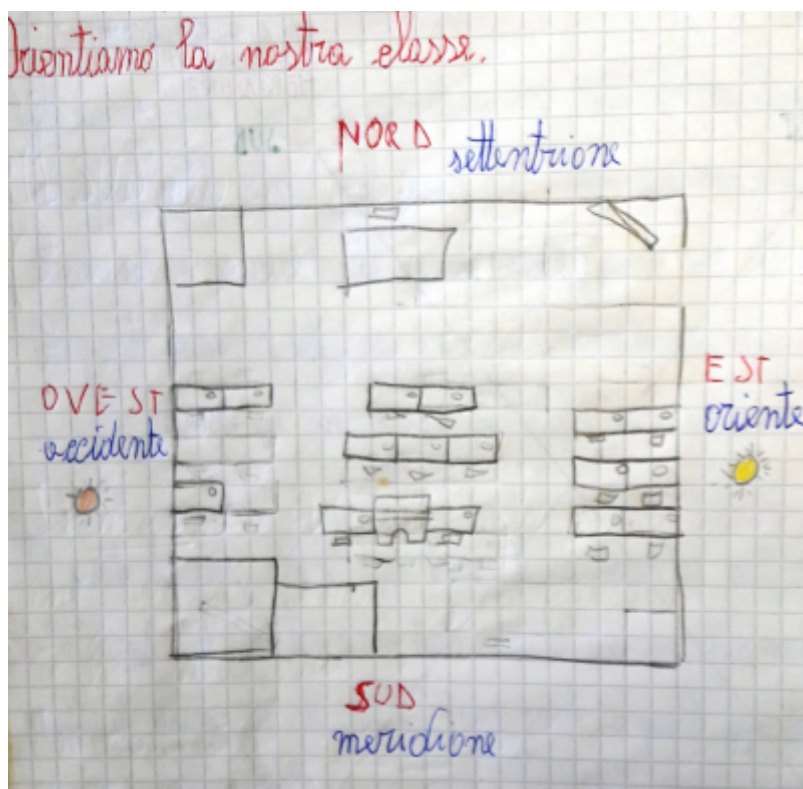 Orientiamo la nostra classe.
NORD settentrione
OVEST
occidente
EST
oriente
SUD
meridione